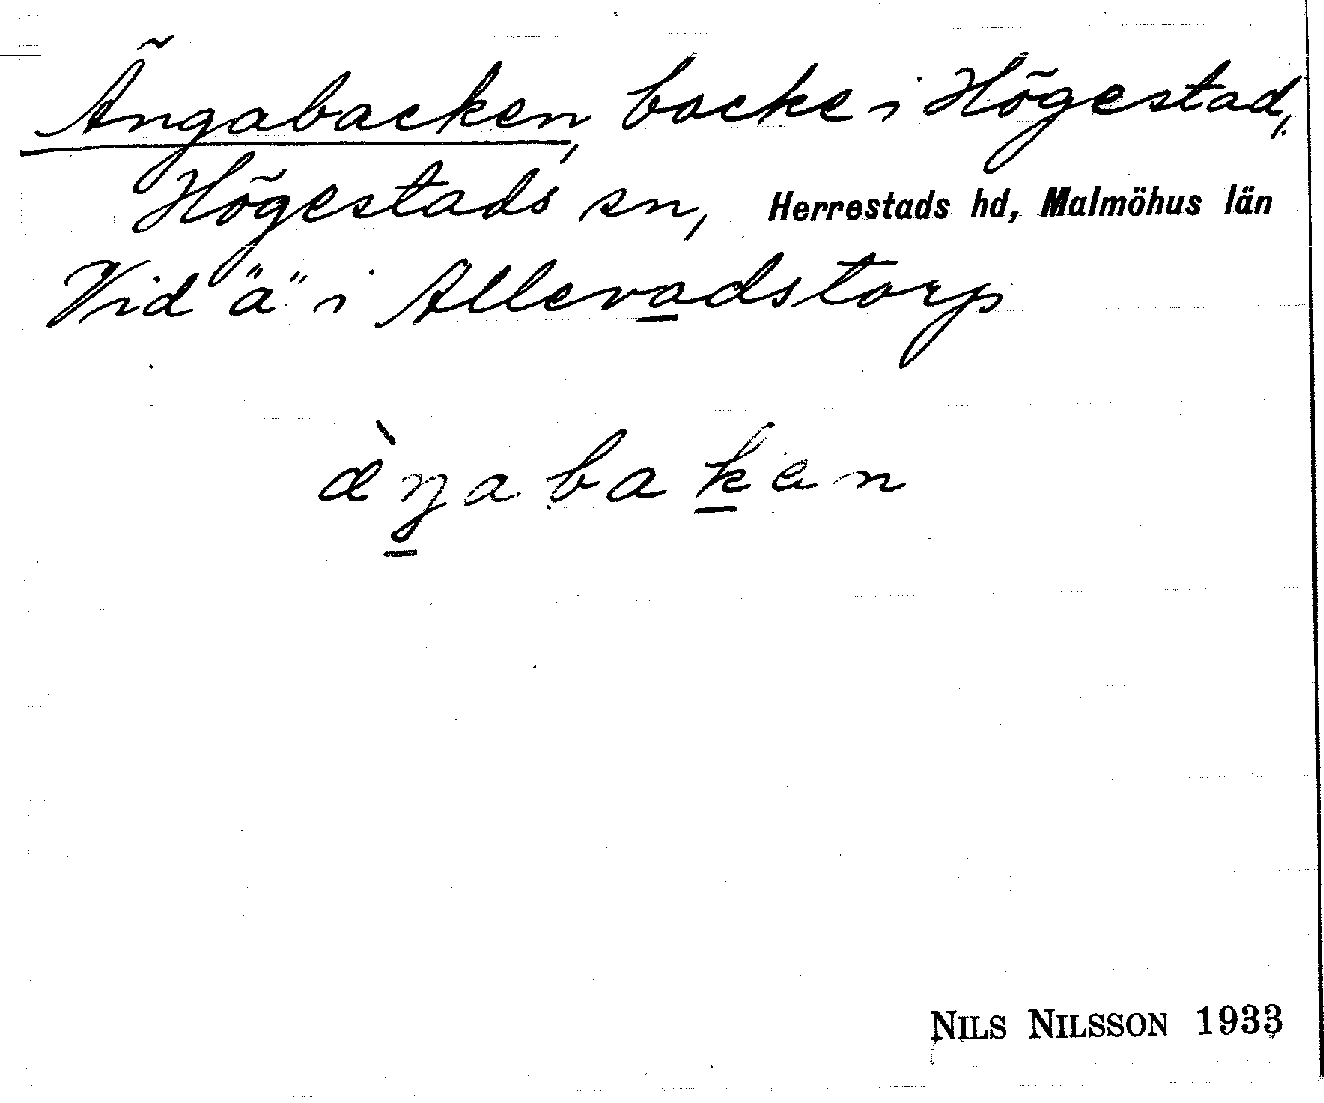 Ängabacken, backe i Högestad,
Högestads sn, Herrestads hd, Malmöhus län
Vid "a" i Allevadstorp
æ̀ŋabakен
NILS NILSSON 1933